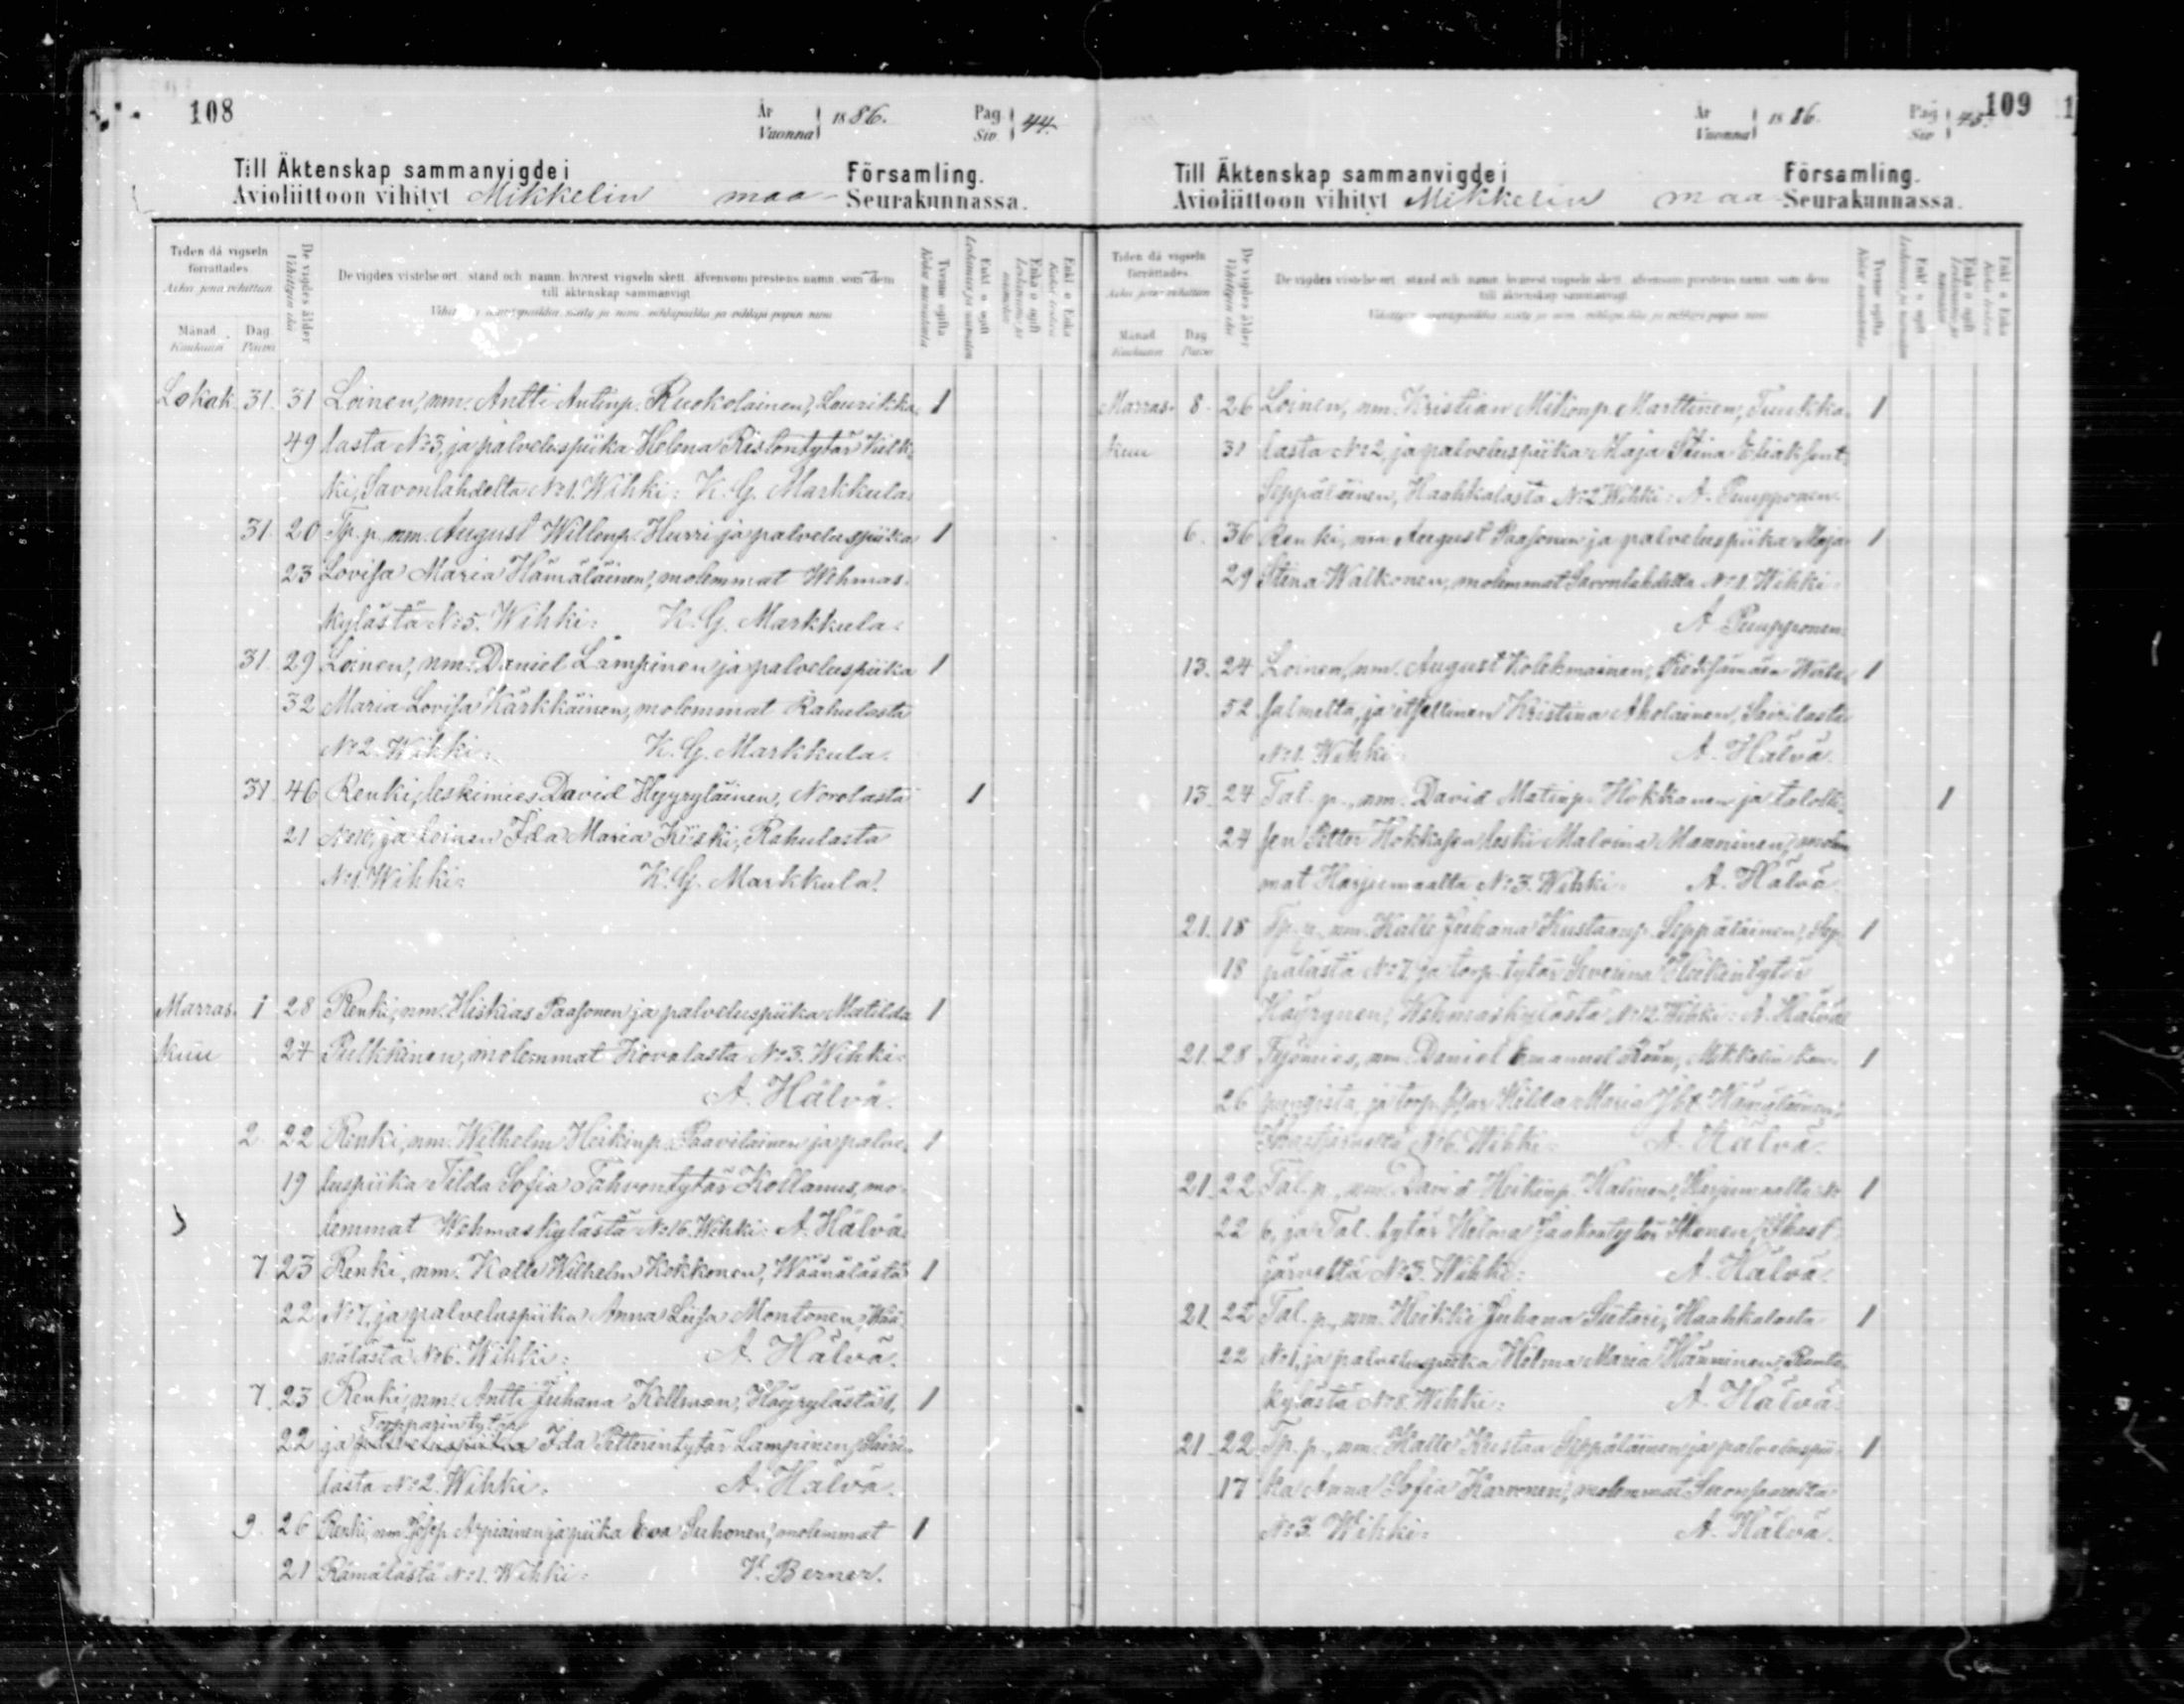 108
År Vuonna 1886. Pag. Siv. 44.
Till Äktenskap sammanvigde i Församling.
Avioliittoon vihityt Mikkelin maa- Seurakunnassa.
Tiden då vigseln förrättades
Aika jona vihittiin
Månad. Kuukausi
Dag. Päivä
De vigdes ålder
Vihittyin ikä
De vigdes vistelseort, stånd och namn, hvarest vigseln skett, äfvensom prestens namn, som dem
till äktenskap sammanvigt
Tvenne ogifta
Enkl. o. ogift
Enka o. ogift
Enkl. o. Enka
Lokak. 31. 31 Loinen, nm. Antti Antinp. Ruokolainen, Laurikka- 1
49 lasta No 3, ja palveluspiika Helena Ristontytär Kulk-
ki, Savonlahdelta No 1. Wihki: K. G. Markkula.
31. 20 Tp. p. nm. August Willenp. Hurri ja palveluspiika 1
23 Lovisa Maria Hämäläinen, molemmat Wehmas-
kylästä No 5. Wihki: K. G. Markkula.
31. 29 Loinen, nm. Daniel Lampinen ja palveluspiika 1
32 Maria Lovisa Kärkkäinen, molemmat Rahulasta
No 2. Wihki: K. G. Markkula.
31 46 Renki, leskimies David Hyyryläinen, Norolasta 1
21 No 16, ja loinen Ida Maria Kiiski, Rahulasta
No 1. Wihki: K. G. Markkula.
Marras- 1 28 Renki, nm. Hiskias Paasonen ja palveluspiika Matilda 1
kuu 24 Pulkkinen, molemmat Kovalasta No 3. Wihki:
A. Hälvä.
2 22 Renki, nm. Wilhelm Heikinp. Paavilainen ja palve- 1
19 luspiika Tilda Sofia Tahvontytär Kollanus, mo-
lemmat Wehmaskylästä No 16. Wihki: A. Hälvä.
7 23 Renki, nm. Kalle Wilhelm Kokkonen, Wäänälästä 1
22 No 7, ja palveluspiika Anna Liisa Montonen, Wää-
nälästä No 6. Wihki: A. Hälvä.
7. 23 Renki, nm. Antti Juhana Kellman, Häyrylästä 1, 1
Torpparin tytär
22 ja palveluspiika Ida Petterintytär Lampinen, Sairi-
lasta No 2. Wihki: A. Hälvä.
9. 26 Renki, nm. Josep. Arpiainen ja piika Eva Suhonen, molemmat 1
21 Rämälästä No 1. Wihki: K. Berner.
109
År Vuonna 1886. Pag. Siv. 45.
Till Äktenskap sammanvigde i Församling.
Avioliittoon vihityt Mikkelin maa Seurakunnassa.
Tiden då vigseln förrättades
Aika jona vihittiin
Månad. Kuukausi
Dag. Päivä
De vigdes ålder
Vihittyin ikä
De vigdes vistelseort, stånd och namn, hvarest vigseln skett, äfvensom prestens namn, som dem
till äktenskap sammanvigt
Tvenne ogifta
Enkl. o. ogift
Enka o. ogift
Enkl. o. Enka
Marras- 8. 26 Loinen, nm. Kristian Mikonp. Marttinen, Tuukka- 1
kuu 31 lasta No 2, ja palveluspiika Maja Stina Eliaksent.
Seppäläinen, Haahkalasta No 2. Wihki: A. Pumpponen.
6. 36 Renki, nm. August Paasonen ja palveluspiika Maja 1
29 Stina Walkonen, molemmat Savonlahdelta No 1. Wihki:
A. Pumpponen.
13. 24 Loinen, nm. August Kolehmainen, 1
52 salmelta, ja itsellinen Kristina Aholainen, Sairilasta
No 1. Wihki: A. Hälvä.
13. 24 Tal. p., nm. David Matinp. Hokkanen ja talolli- 1
24 sen Petter Hokkasen leski Malvina Manninen, molem
mat Harjumaalta No 3. Wihki: A. Hälvä.
21. 18 Tp. p., nm. Kalle Juhana Kustaanp. Seppäläinen, Sep- 1
18 pälästä No 7, ja torp. tytär Severina Heikintytär
Häyrynen, Wehmaskylästä No 12. Wihki: A. Hälvä
21. 28 Työmies, nm. Daniel Emanuel Mikkelin kau- 1
26 pungista, ja torp. Hilda Maria
No 6. Wihki: A. Hälvä.
21. 22 Tal. p., nm. David Heikinp. Halinen, Harjumaalta No 1
22 6, ja Tal. tytär Helena Jaakontytär Ikonen,
järveltä No 3. Wihki: A. Hälvä.
21. 22 Tal. p., nm. Heikki Juhana Siitari, Haahkalasta 1
22 No 1, ja palveluspiika Helena Maria Hänninen,
kylästä No 8. Wihki: A. Hälvä.
21. 22 Tp. p., nm. Kalle Kustaa Seppäläinen ja palveluspii- 1
17 ka Anna Sofia Karvonen, molemmat
No 3. Wihki: A. Hälvä.